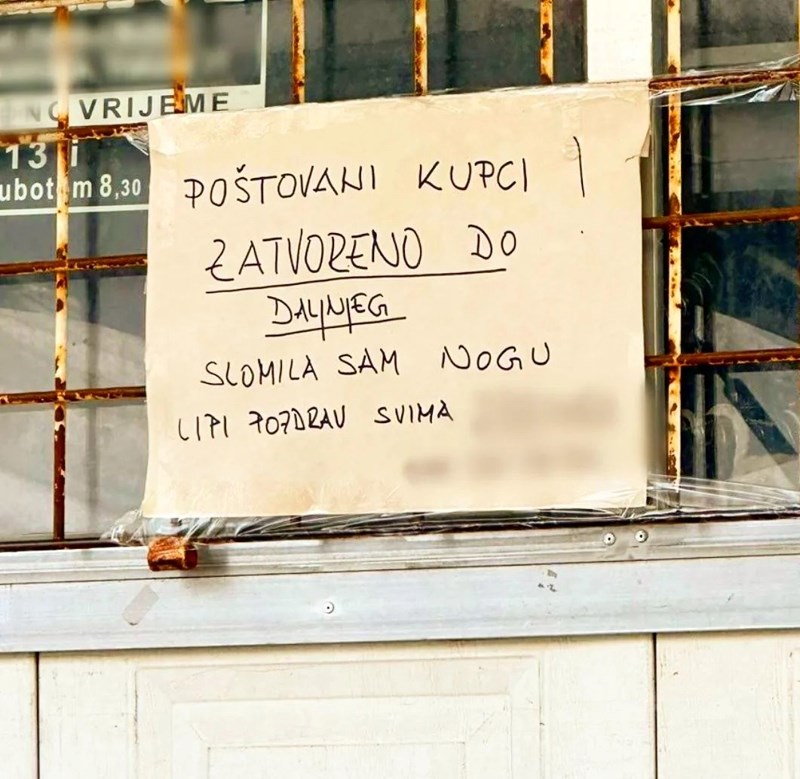 VRIJEME
13 i
ubotom 8,30
POŠTOVANI KUPCI !
ZATVORENO DO
DALJNJEG
SLOMILA SAM NOGU
LIPI POZDRAV SVIMA